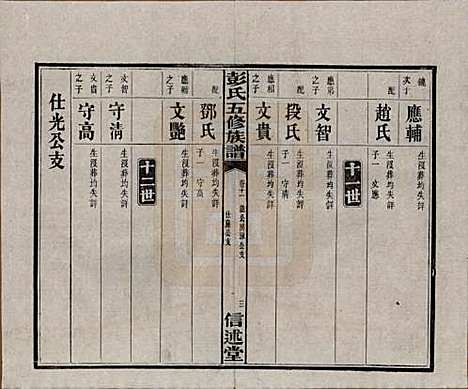 總
次子
應輔
生沒葬均失詳
配
趙氏
生沒葬均失詳
子一 文應
十一世
應弟
之子
文智
生沒葬均失詳
配
段氏
生沒葬均失詳
子一 守清
應相
之子
文貴
生沒葬均失詳
彭氏五修族譜
卷十一
仕廉公支
三
信述堂
配
鄧氏
生沒葬均失詳
子一 守高
應輔
之子
文艷
生沒葬均失詳
十二世
文智
之子
守清
生沒葬均失詳
文貴
之子
守高
生沒葬均失詳
仕光公支